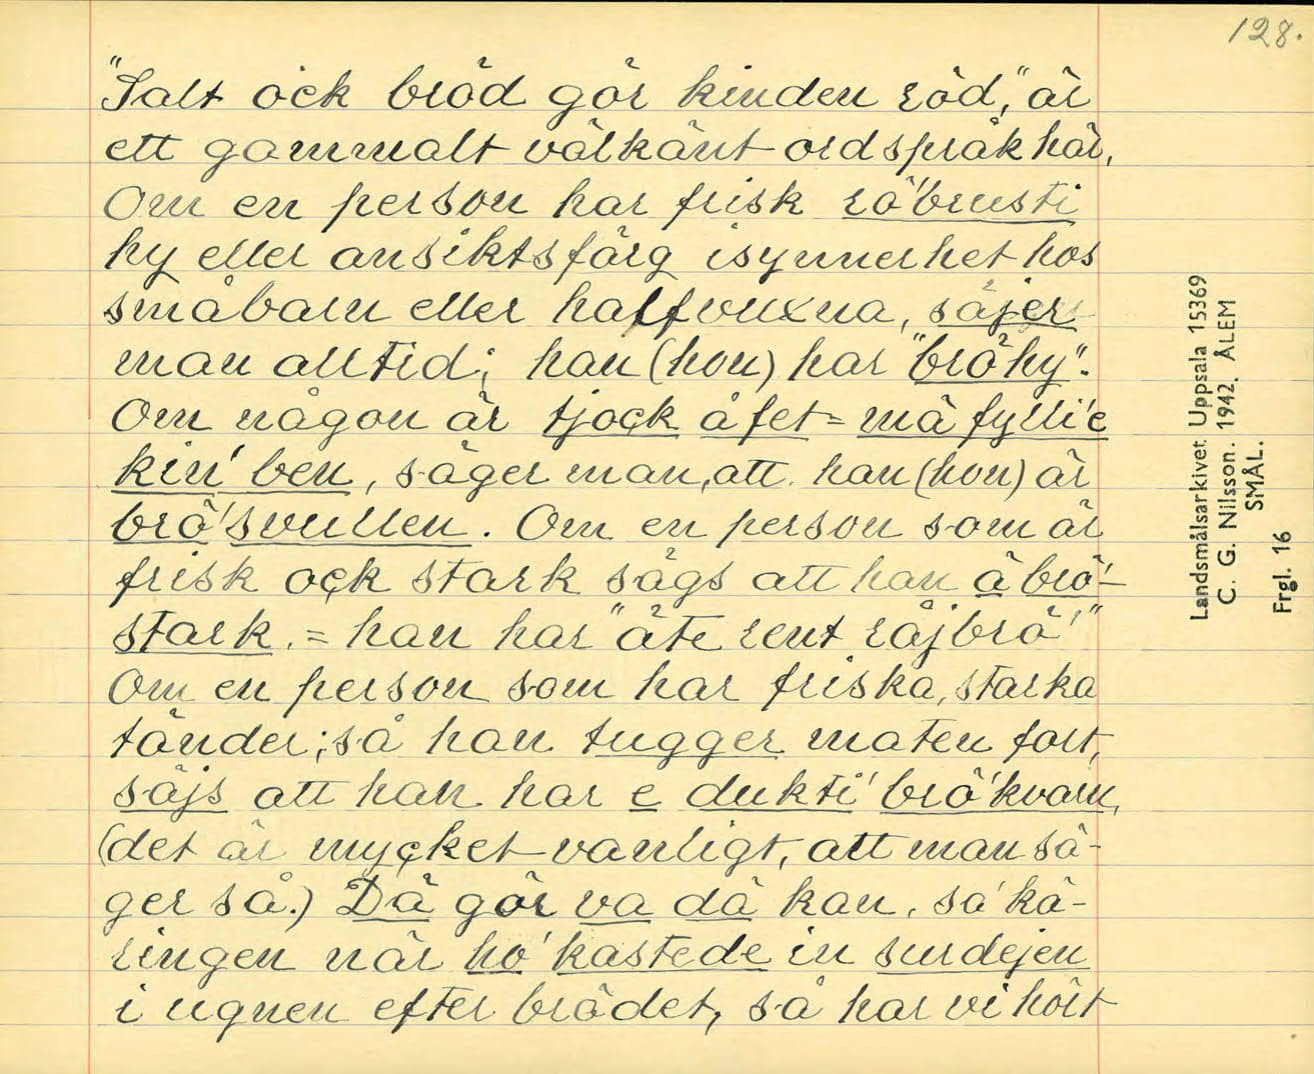 128.
"Salt ock bröd gör kinden röd," är
ett gammalt välkänt ordspråk här.
Om en person har frisk rö'brusti
hy eller ansiktsfärg isynnerhet hos
småbarn eller halfvuxna, säjer
man alltid; han (hon) har "bröhy".
Om någon är tjock å fet = mä fylli'e
kin' ben, säger man, att han (hon) är
brö'svullen. Om en person som är
frisk ock stark sägs att han ä brö'-
stark. = han har "äte rent råjbrö'"
Om en person som har friska, starka
tänder; så han tugger maten fort,
säjs att han har e dukti' brö'kvarn,
(det är mycket vanligt, att man sä-
ger så.) Dä gör va dä kan, sa' kä-
ringen när ho' kastede in surdejen
i ugnen efter brödet, så har vi hört
Landsmålsarkivet Uppsala 15369
C. G. Nilsson. 1942. ÅLEM
SMÅL.
Frgl. 16